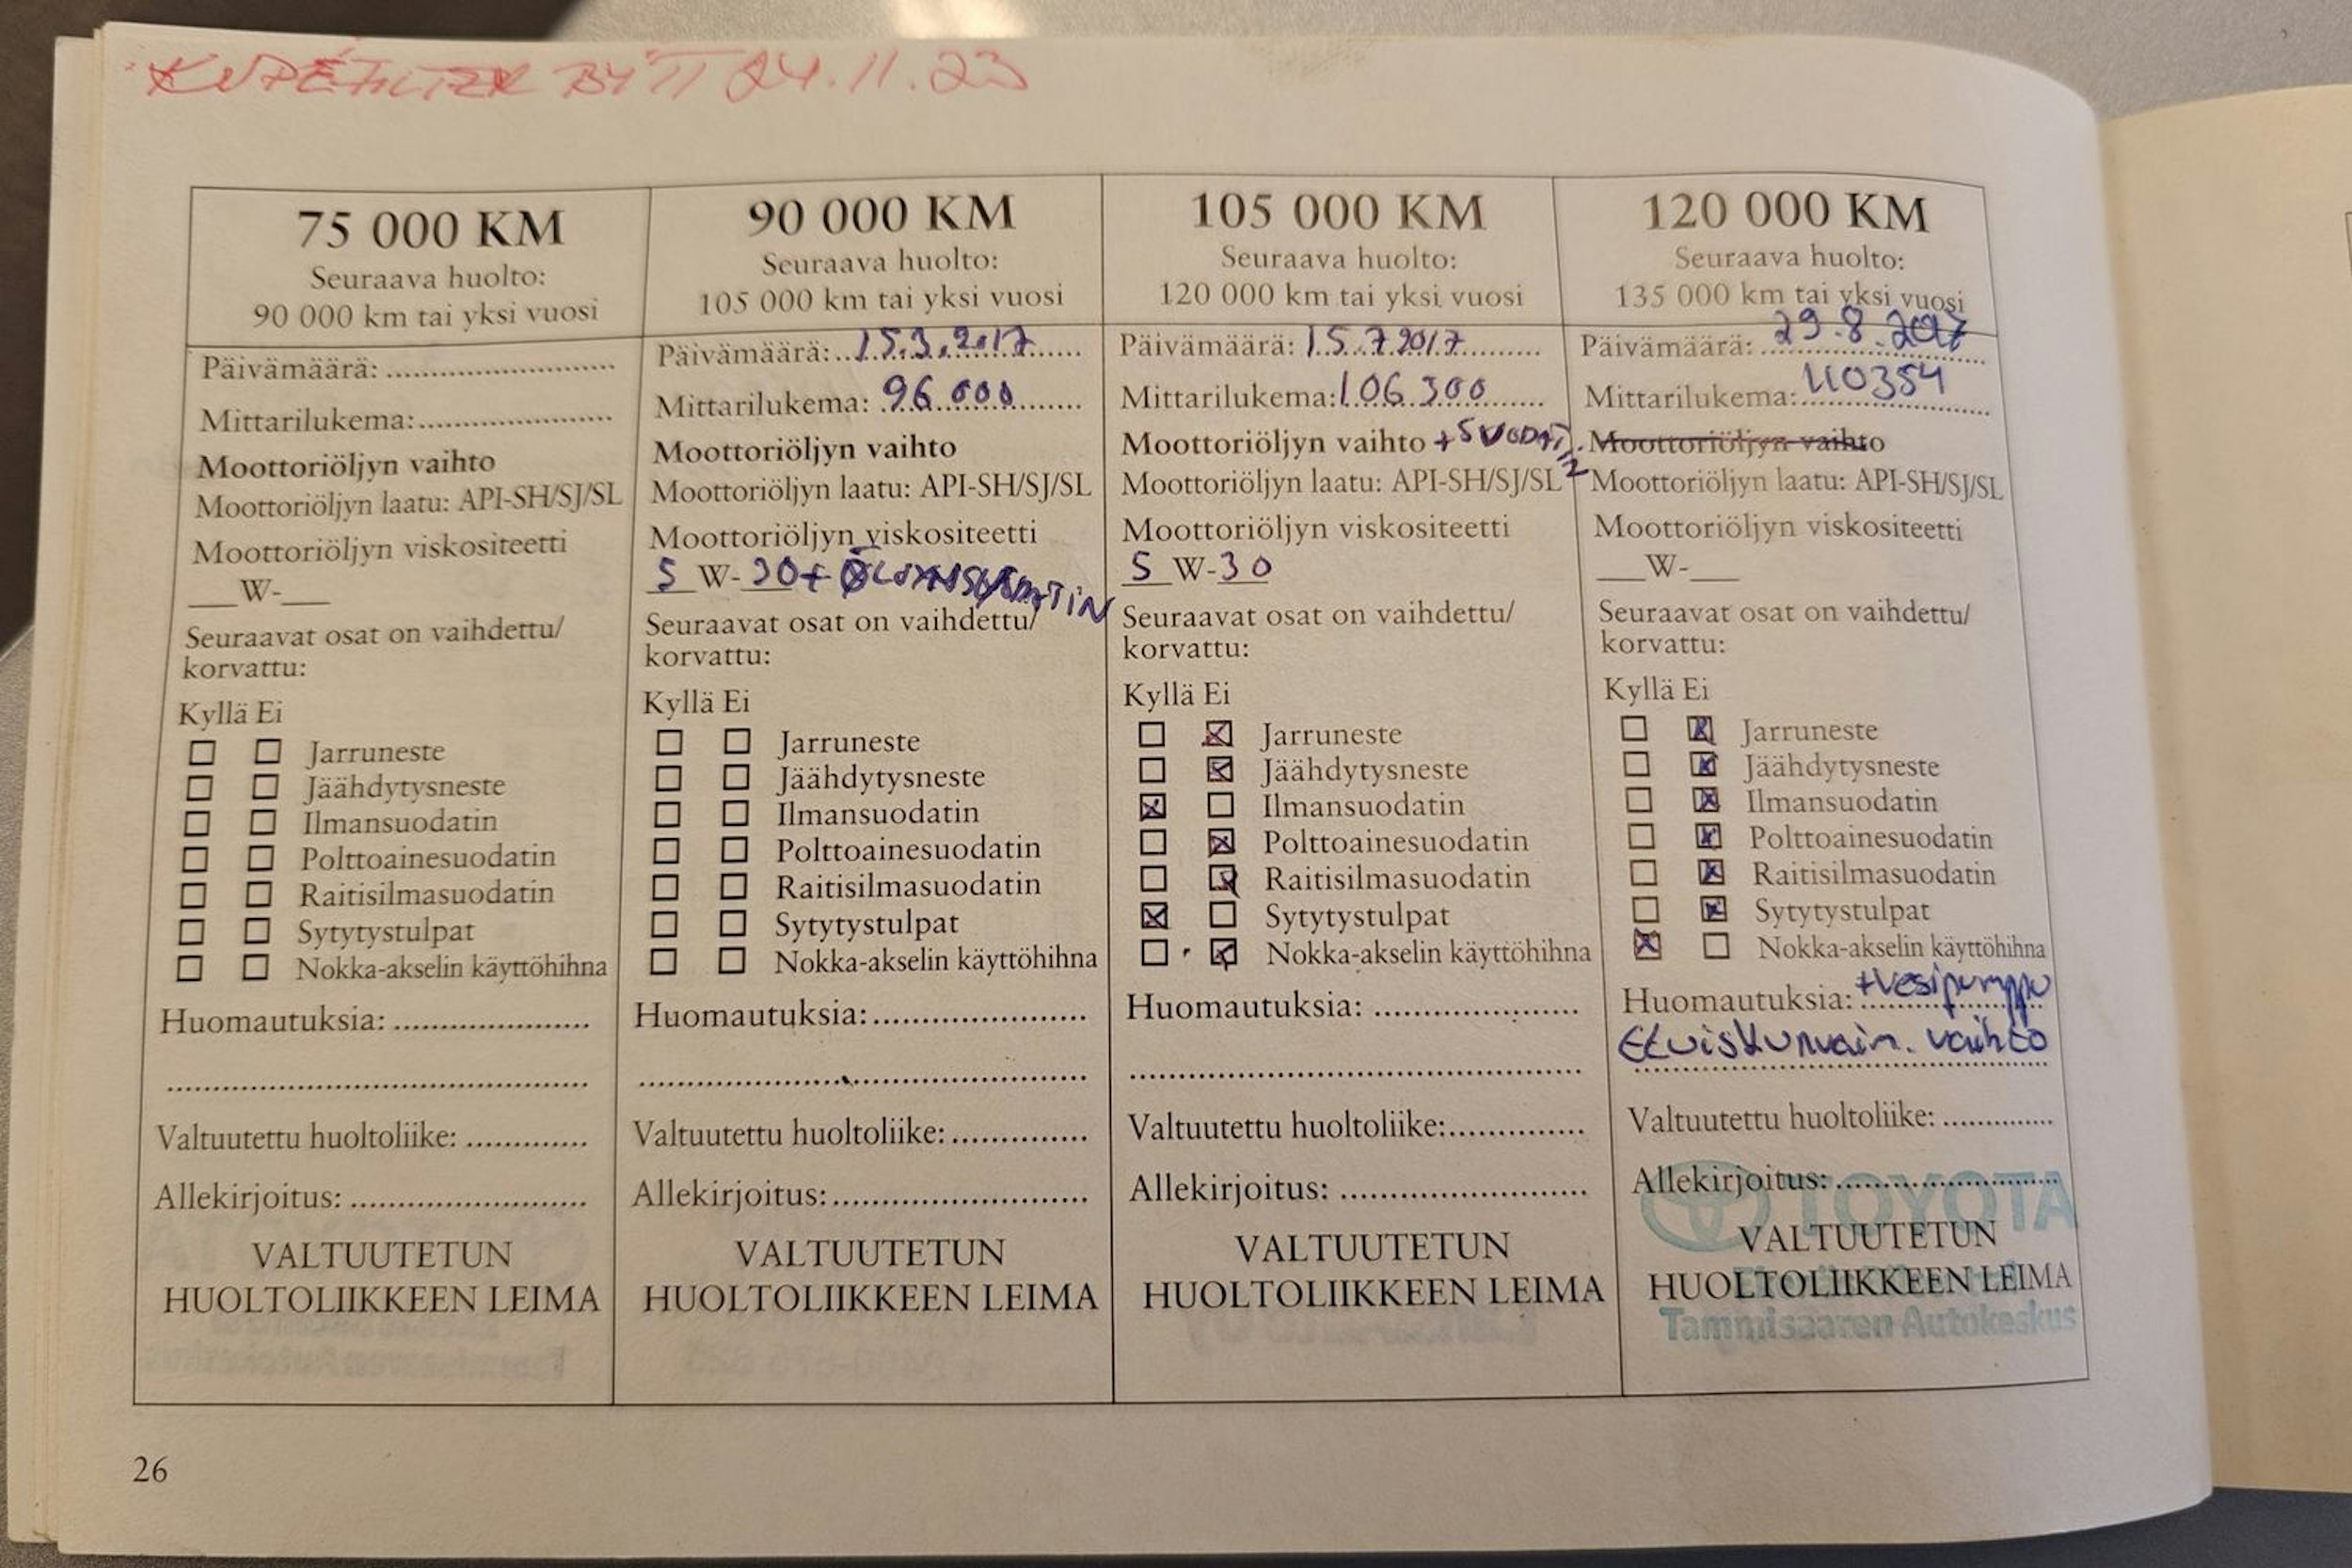 KUPÉFILTER BYTT 24.11.23
75 000 KM
Seuraava huolto:
90 000 km tai yksi vuosi
Päivämäärä:
Mittarilukema:
Moottoriöljyn vaihto
Moottoriöljyn laatu: API-SH/SJ/SL
Moottoriöljyn viskositeetti
___W-___
Seuraavat osat on vaihdettu/
korvattu:
Kyllä Ei
Jarruneste
Jäähdytysneste
Ilmansuodatin
Polttoainesuodatin
Raitisilmasuodatin
Sytytystulpat
Nokka-akselin käyttöhihna
Huomautuksia:
Valtuutettu huoltoliike:
Allekirjoitus:
VALTUUTETUN
HUOLTOLIIKKEEN LEIMA
90 000 KM
Seuraava huolto:
105 000 km tai yksi vuosi
Päivämäärä: 15.3.2017
Mittarilukema: 96 000
Moottoriöljyn vaihto
Moottoriöljyn laatu: API-SH/SJ/SL
Moottoriöljyn viskositeetti
5 W-30 + ÖLJYNSUODATIN
Seuraavat osat on vaihdettu/
korvattu:
Kyllä Ei
Jarruneste
Jäähdytysneste
Ilmansuodatin
Polttoainesuodatin
Raitisilmasuodatin
Sytytystulpat
Nokka-akselin käyttöhihna
Huomautuksia:
Valtuutettu huoltoliike:
Allekirjoitus:
VALTUUTETUN
HUOLTOLIIKKEEN LEIMA
105 000 KM
Seuraava huolto:
120 000 km tai yksi vuosi
Päivämäärä: 15.7.2017
Mittarilukema: 106 300
Moottoriöljyn vaihto + SUODATIN
Moottoriöljyn laatu: API-SH/SJ/SL
Moottoriöljyn viskositeetti
5 W-30
Seuraavat osat on vaihdettu/
korvattu:
Kyllä Ei
Jarruneste
Jäähdytysneste
Ilmansuodatin
Polttoainesuodatin
Raitisilmasuodatin
Sytytystulpat
Nokka-akselin käyttöhihna
Huomautuksia:
Valtuutettu huoltoliike:
Allekirjoitus:
VALTUUTETUN
HUOLTOLIIKKEEN LEIMA
120 000 KM
Seuraava huolto:
135 000 km tai yksi vuosi
Päivämäärä: 29.8.2017
Mittarilukema: 110354
Moottoriöljyn vaihto
Moottoriöljyn laatu: API-SH/SJ/SL
Moottoriöljyn viskositeetti
___W-___
Seuraavat osat on vaihdettu/
korvattu:
Kyllä Ei
Jarruneste
Jäähdytysneste
Ilmansuodatin
Polttoainesuodatin
Raitisilmasuodatin
Sytytystulpat
Nokka-akselin käyttöhihna
Huomautuksia: +vesipumppu
Etuiskunvaim. vaihto
Valtuutettu huoltoliike:
Allekirjoitus:
TOYOTA
VALTUUTETUN
HUOLTOLIIKKEEN LEIMA
Tammisaaren Autokeskus
26